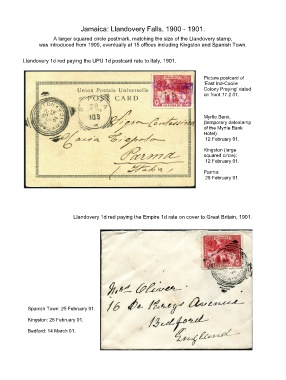 Jamaica: Llandovery Falls, 1900 - 1901.
A larger squared circle postmark, matching the size of the Llandovery stamp,
was introduced from 1900, eventually at 15 offices including Kingston and Spanish Town.
Llandovery 1d red paying the UPU 1d postcard rate to Italy, 1901.
Union Postale Universelle
POST CARD
Contessina
Maria
Parma
Italia
Picture postcard of
'East Ind-Coolie
Colony Praying' dated
on front 11.2.01.
Myrtle Bank,
(temporary datestamp
of the Myrtle Bank
Hotel):
12 February 01.
Kingston (large
squared circle):
12 February 01.
Parma:
28 February 01.
Llandovery 1d red paying the Empire 1d rate on cover to Great Britain, 1901.
Mrs Oliver
16 De Parys Avenue
Bedford
England
Spanish Town: 25 February 01.
Kingston: 26 February 01.
Bedford: 14 March 01.